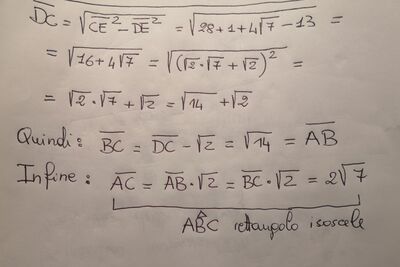 D̅C̅ = √(C̅E̅² − D̅E̅²) = √(28+1+4√7−13) =
= √(16+4√7) = √((√2·√7+√2)²) =
= √2·√7+√2 = √14 + √2
Quindi: B̅C̅ = D̅C̅ − √2 = √14 = A̅B̅
Infine: A̅C̅ = A̅B̅·√2 = B̅C̅·√2 = 2√7
AB̂C rettangolo isoscele